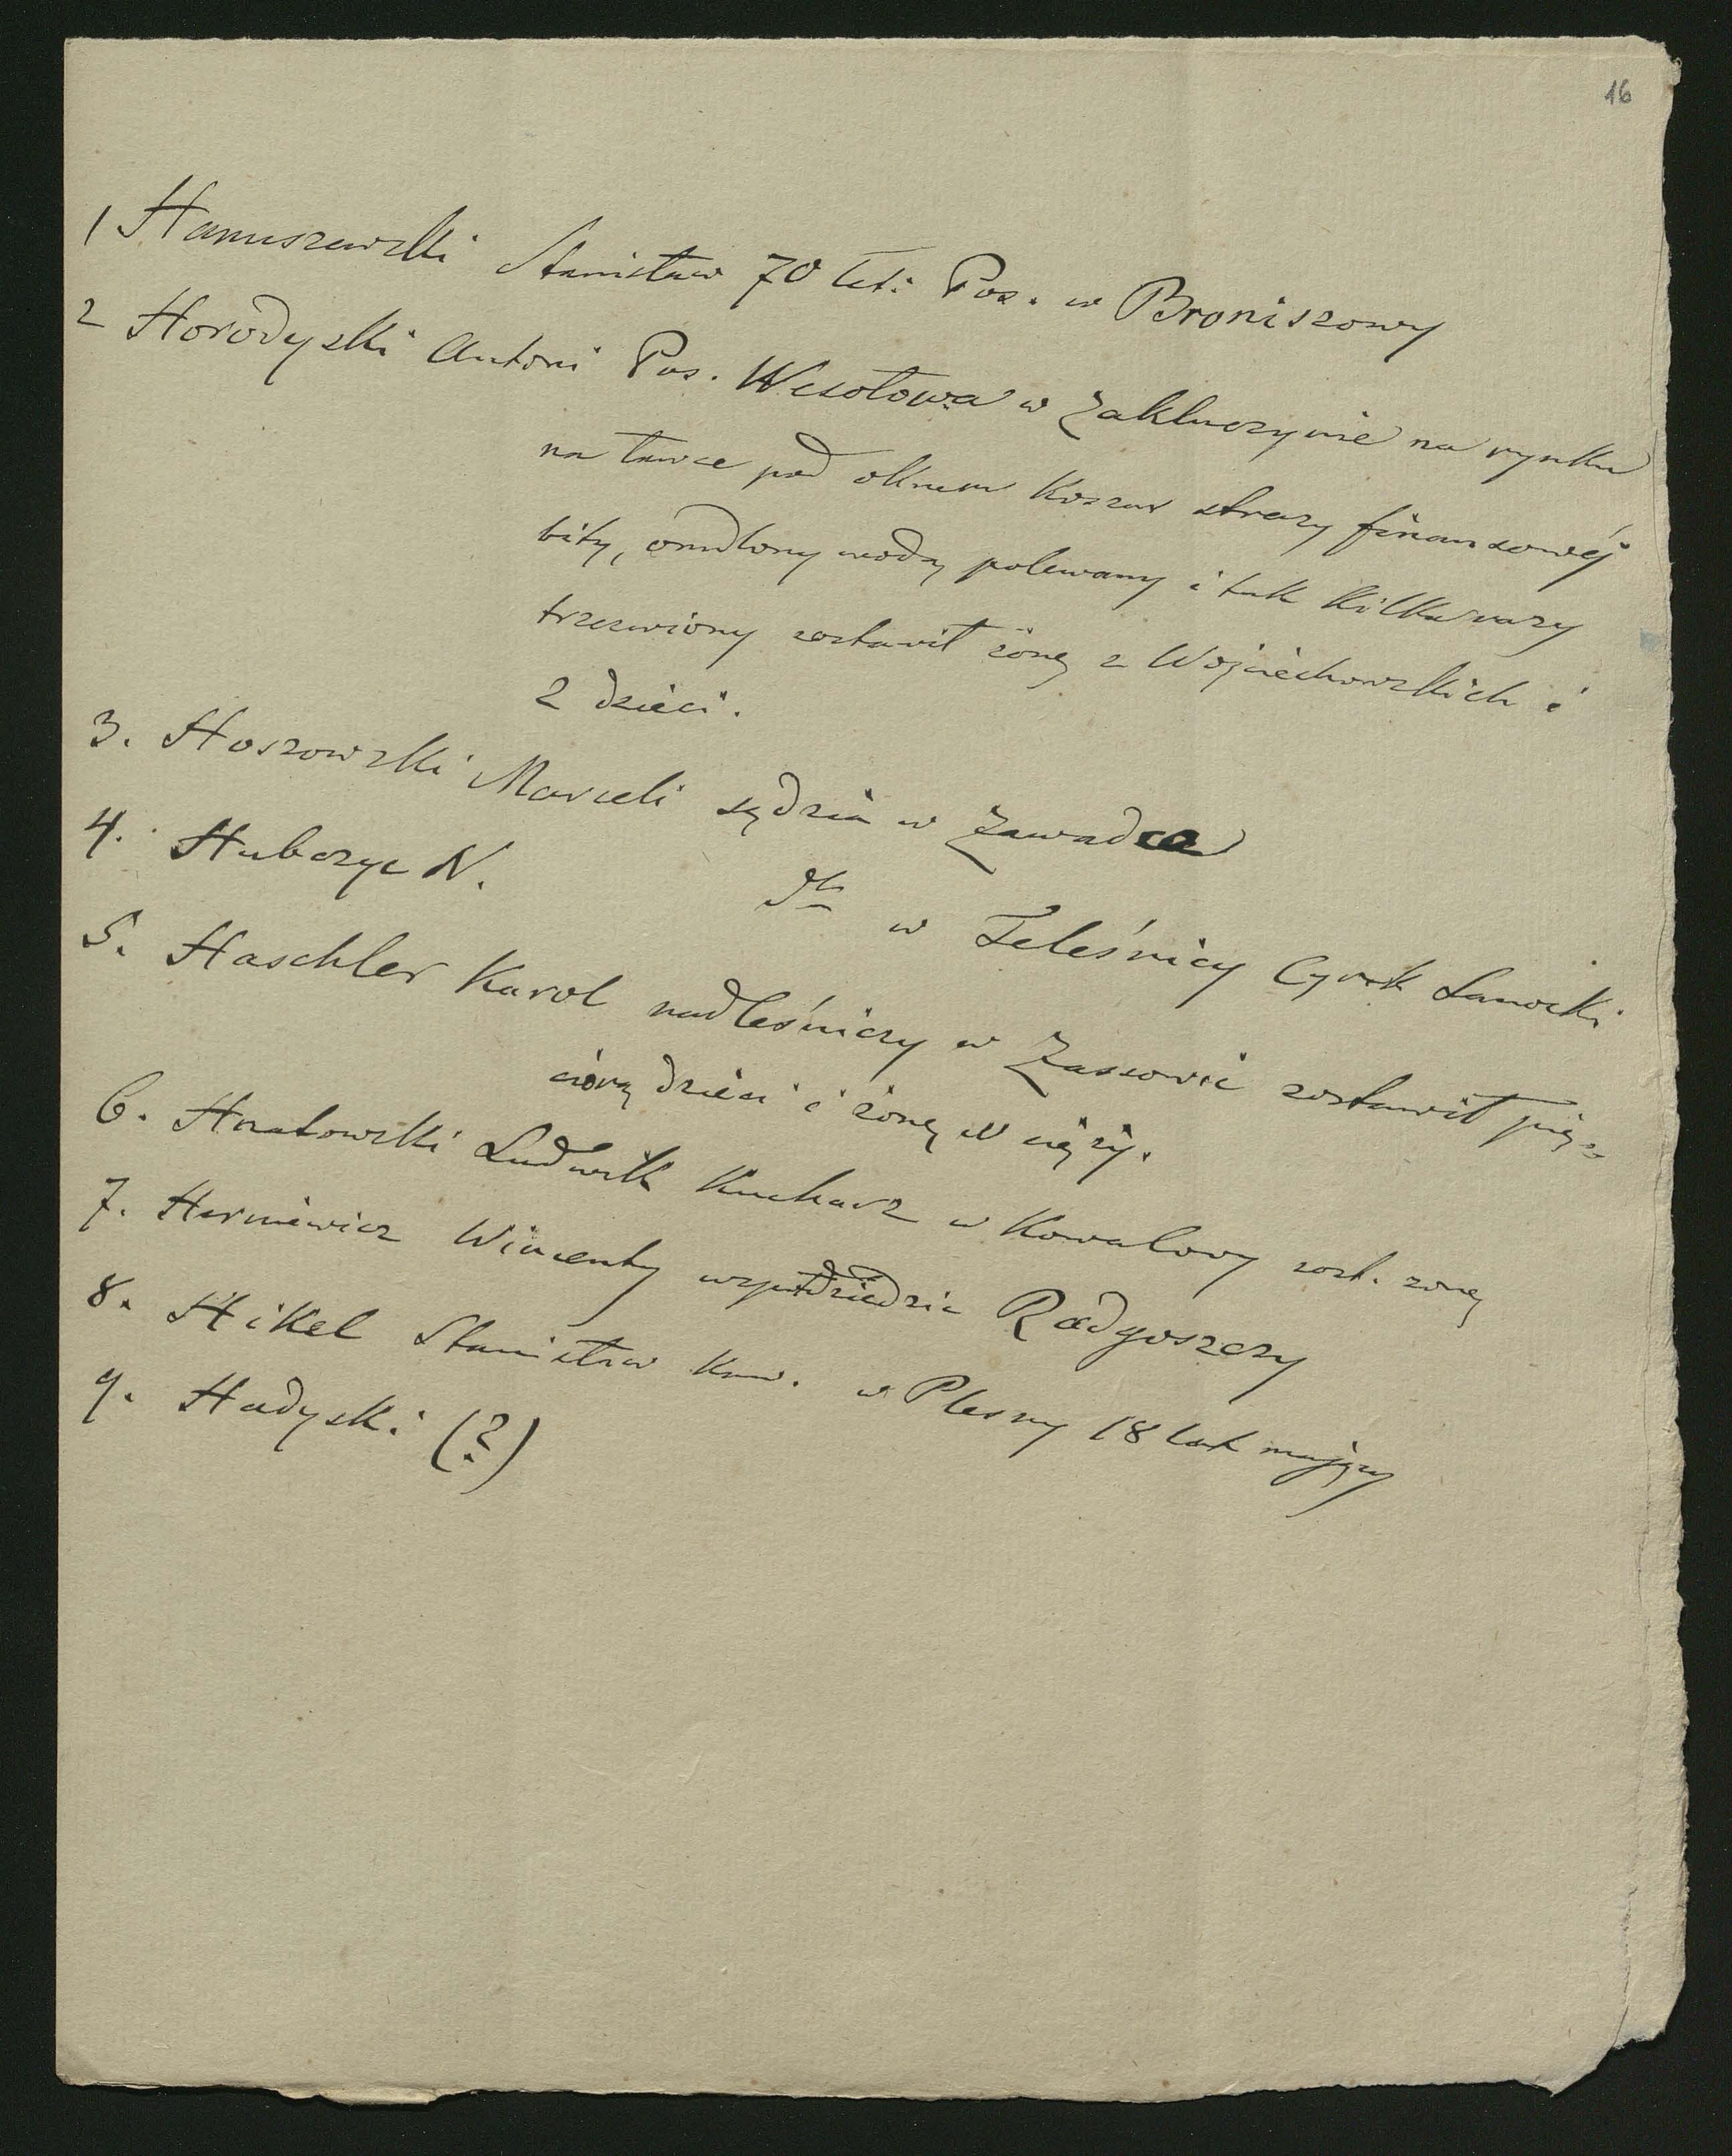 16
1 Hanuszewski Stanisław 70 let: Pos. w Broniszowy
2 Horodyski Antoni Pos. Wesołowa w Zakluczynie na rynku
na ławce pod oknem Koszar straży finansowéj
bity, omdlony wodą polewany i tak kilka razy
trzezwiony zostawił żonę z Wojciechowskich i
2 dzieci.
3. Hoszowski Marceli sędzia w Zawadce
4. Hubczyc N. dto w Teleśnicy Cyrk Sanocki
5. Haschler Karol nadleśniczy w Zassowie zostawił pię-
cioro dzieci i żonę w ciąży.
6. Hnatowski Ludwik Kucharz w Kowalowy zost. żonę
7. Herniewicz Wincenty wspołdziedzic Radgoszczy
8. Hikel Stanisław Kaw. w Plesny 18 lat mający
9. Hadyski (?)